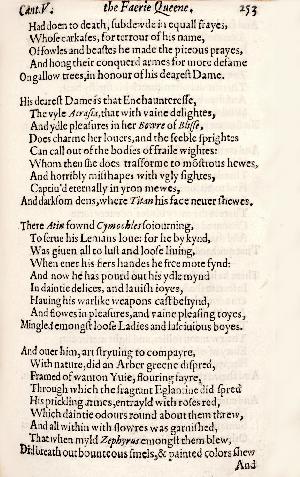 Cant.V. the Faerie Queene. 253
Had doen to death, subdewde in equall frayes,
Whose carkases, for terrour of his name,
Of fowles and beastes he made the piteous prayes,
And hong their conquerd armes for more defame
On gallow trees, in honour of his dearest Dame.
His dearest Dame is that Enchaunteresse,
The vyle Acrasia, that with vaine delightes,
And ydle pleasures in her Bowre of Blisse,
Does charme her louers, and the feeble sprightes
Can call out of the bodies of fraile wightes:
Whom then she does trasforme to mõstrous hewes,
And horribly misshapes with vgly sightes,
Captiu'd eternally in yron mewes,
And darksom dens, where Titan his face neuer shewes.
There Atin fownd Cymochles soiourning,
To serue his Lemans loue: for he by kynd,
Was giuen all to lust and loose liuing,
When euer his fiers handes he free mote fynd:
And now he has pourd out his ydle mynd
In daintie delices, and lauish ioyes,
Hauing his warlike weapons cast behynd,
And flowes in pleasures, and vaine pleasing toyes,
Mingled emongst loose Ladies and lasciuious boyes.
And ouer him, art stryuing to compayre,
With nature, did an Arber greene dispred,
Framed of wanton Yuie, flouring fayre,
Through which the fragrant Eglantine did spred
His prickling armes, entrayld with roses red,
Which daintie odours round about them threw,
And all within with flowres was garnished,
That when myld Zephyrus emongst them blew,
Did breath out bounteous smels, & painted colors shew
And